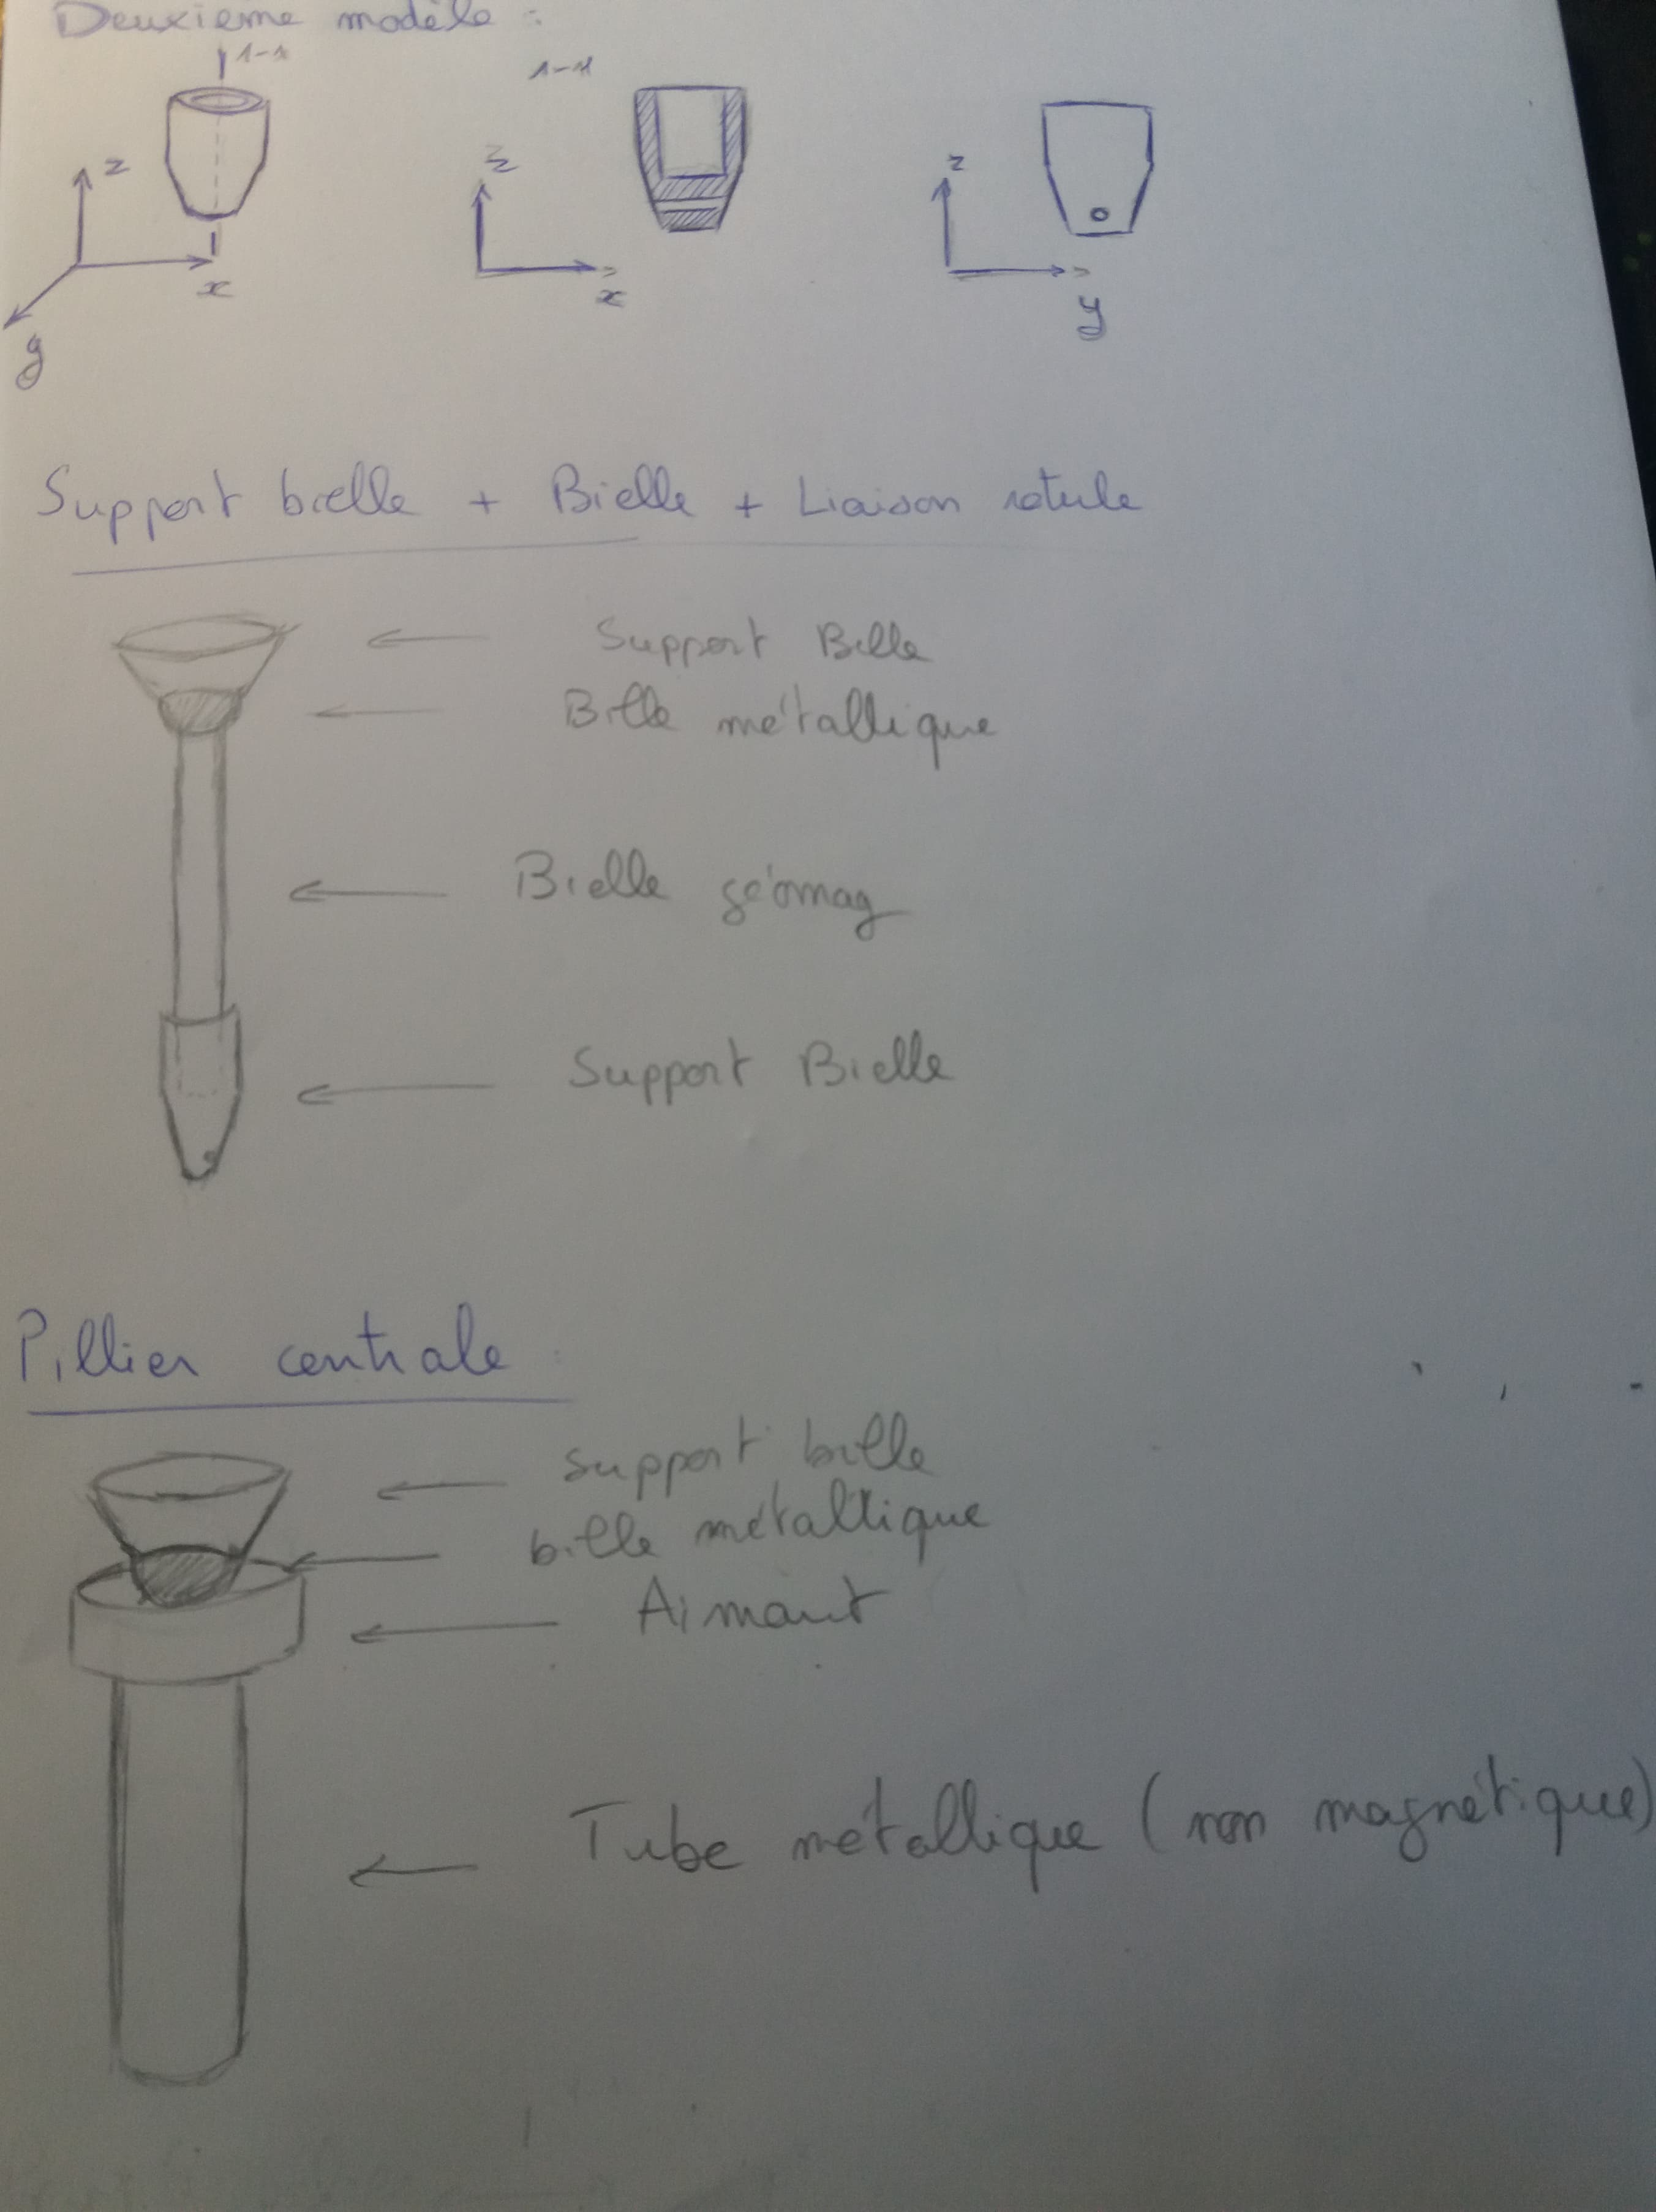 Deuxieme modèle :
1-1
1-1
z
x
y
z
x
z
y
Support bielle + Bielle + Liaison rotule
Support Bille
Bille métallique
Bielle géomag
Support Bielle
Pillier centrale :
support bille
bille métallique
Aimant
Tube métallique (non magnétique)